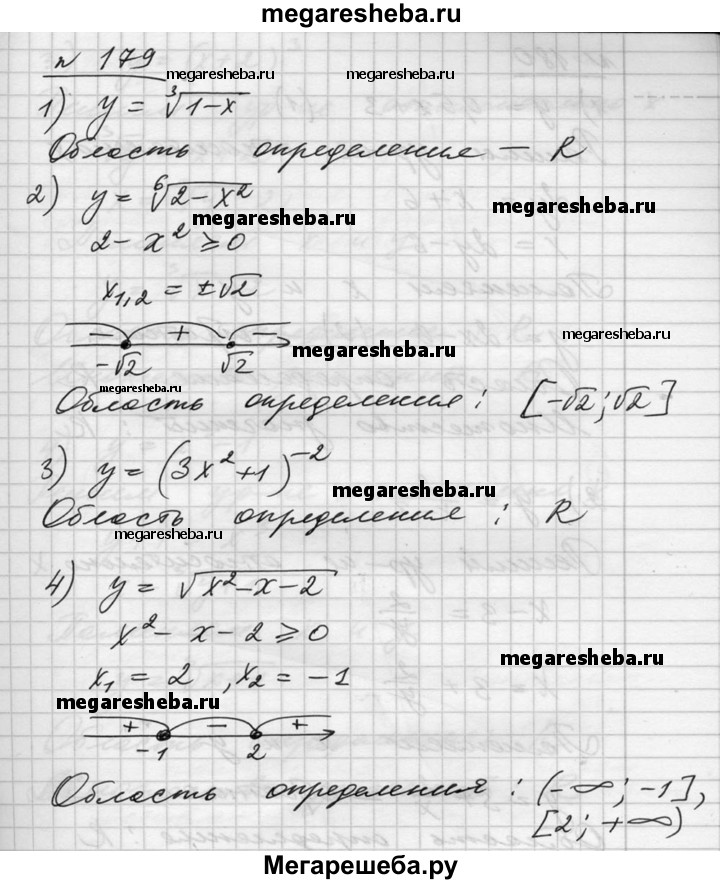 megaresheba.ru
n 179
megaresheba.ru megaresheba.ru
1) y = ∛(1-x)
Область определения — R
2) y = ⁶√(2-x²)
megaresheba.ru megaresheba.ru
2 - x² ≥ 0
x₁,₂ = ±√2
megaresheba.ru
− + −
megaresheba.ru
-√2 √2
megaresheba.ru
Область определения: [-√2; √2]
3) y = (3x²+1)⁻²
megaresheba.ru
Область определения: R
megaresheba.ru
4) y = √(x²-x-2)
x² - x - 2 ≥ 0
megaresheba.ru
x₁ = 2, x₂ = -1
megaresheba.ru
+ − +
-1 2
Область определения: (-∞; -1],
[2; +∞)
Мегарешеба.ру